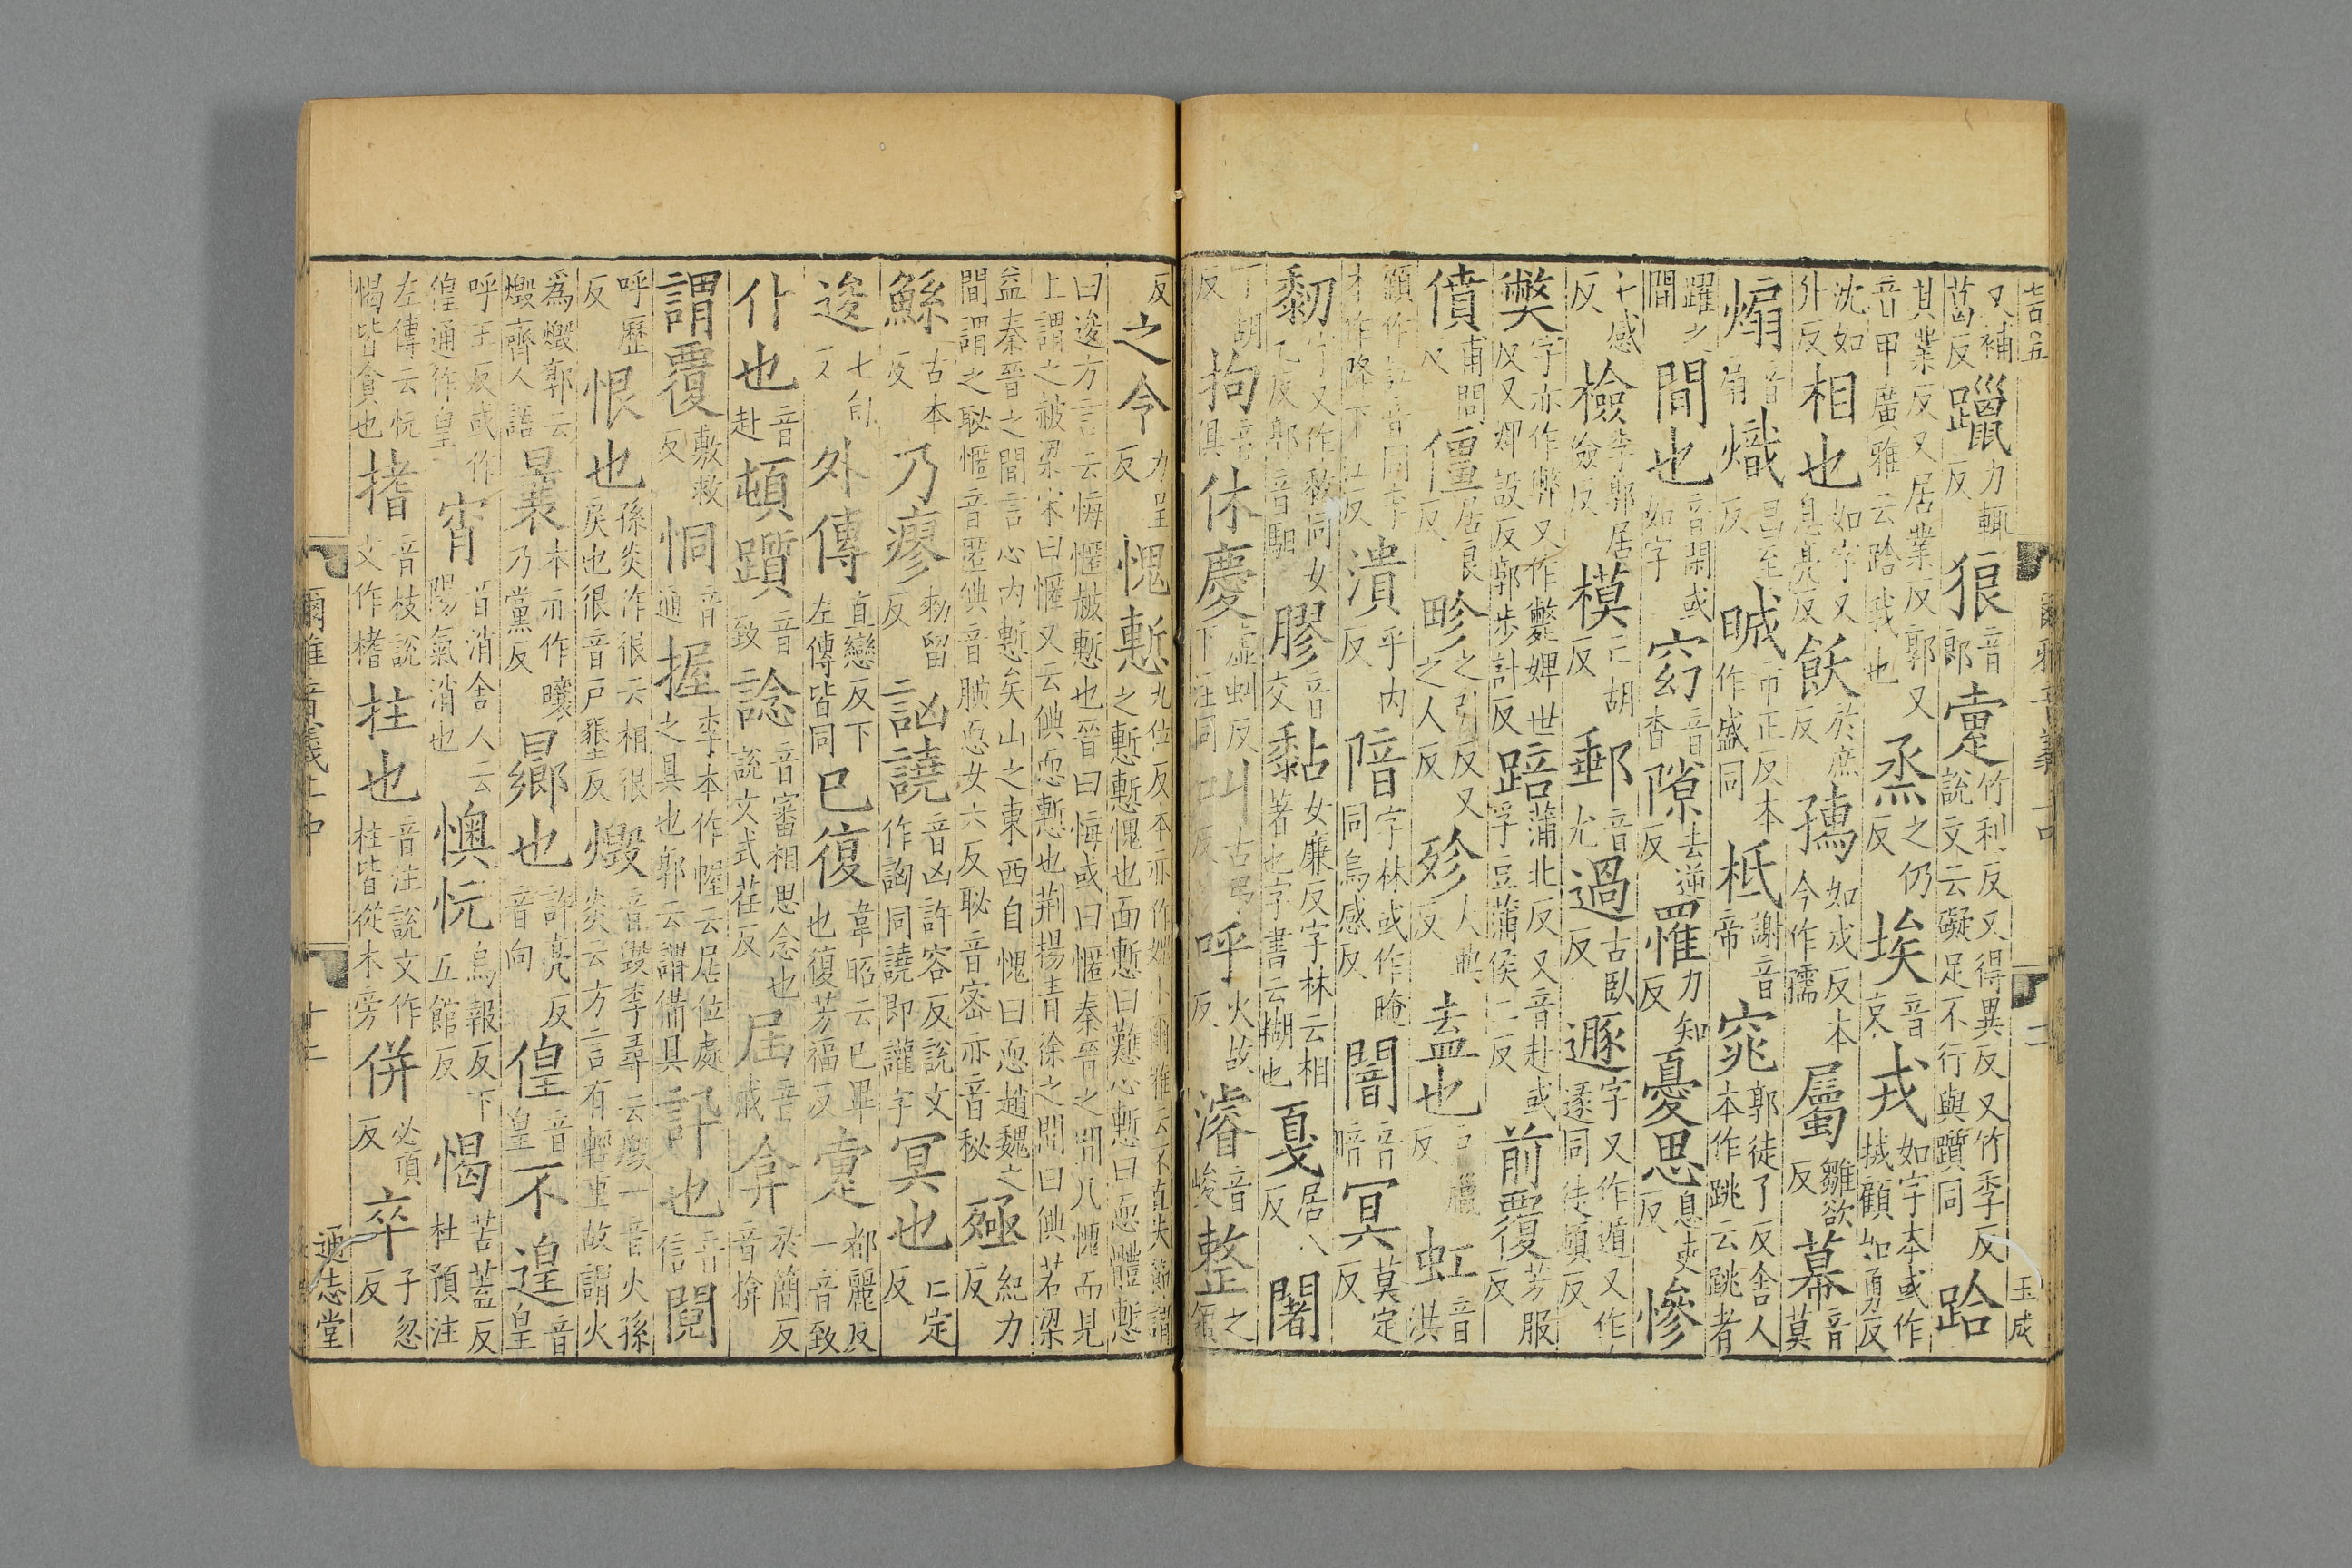 又補葛反 躐 力輒反 狼 音郎 疐 竹利反又得異反又竹季反說文云礙足不行與躓同 跲
其業反又居業反郭又音甲廣雅云跲𨇮也 烝 之仍反 埃 音哀 戎 如字本或作拭顧如勇反
沈如升反 相也 如字又息亮反 飫 於庶反 孺 如戍反本今作孺 屬 雛欲反 幕 音莫
煽 音扇 熾 昌至反 晠 市正反本作盛同 柢 謝音帝 窕 郭徒了反舍人本作跳云跳者
躍之間 間也 音閑或如字 窈 音杳 隙 去逆反 罹 力知反 憂思 息吏反 慘
七感反 檢 李郭居儉反 模 亡胡反 郵 音尤 過 古臥反 遯 字又作遁又作遂同徒頓反
獘 字亦作弊又作斃婢世反又婢設反郭步計反 踣 蒲北反又音赴或孚豆蒲侯二反 前覆 芳服反
僨 甫問反 僵 居良反 畛 之引反又之人反 殄 人典反 盍也 戶臘反 虹 音洪
潰 乎內反 陪 字林或作晻同烏感反 闇 音暗 冥 莫定反
黏 音女廉反字林云相著也字書云糊也 戛 居八反 闍
丁胡反 拘 音俱 休慶 虛虯反下注同 叫 古弔反 呼 火故反 濬 音峻 整 之領
反 之令 力呈反 愧慙 九位反本亦作媿小爾雅云不直失節謂之慙慙愧也面慙曰戁心慙曰恧體慙
曰逡方言云悔𢜪㥏慙也晉曰悔或曰㥏秦晉之間凡愧而見上謂之㥏梁宋曰㥏又云㥏恧慙也荆揚青徐之間曰㥏若梁
益秦晉之間言心內慙矣山之東西自愧曰恧趙魏之間謂之恥㥏音匿㥏音腆恧女六反恥音密亦音祕 殛 紀力反
鯀 古本反 乃瘳 勑留反 訩譊 音凶許容反說文作訩同譊即讙字 冥也 亡定反
逡 七旬反 外傳 直戀反下左傳皆同 巳復 韋昭云巳畢也復芳福反 疐 都麗反一音致
仆也 音赴 頓躓 音致 諗 音審相思念也說文式荏反 屆 音戒 弇 於簡反音揜
謂覆 敷救反 恫 音通 握 李本作幄云居位處之具也郭云謂備具 訊也 音信 鬩
呼歷反 恨也 孫炎作很云相很戾也很音戶墾反 燬 音毀李尋云燬一音火孫炎云方言有輕重故謂火
爲燬郭云燬齊人語 曩 本亦作曩乃黨反 曏也 許亮反音向 偟 音皇 不遑 音皇
呼王反或作偟通作皇 宵 音消舍人云陽氣消也 懊忨 烏報反下五館反 愒 苦蓋反杜預注
左傳云忨愒皆貪也 搘 音枝說文作榰 拄也 音注說文作柱皆從木旁 併 必頂反 卒 子忽反
爾雅音義上中 十二
通志堂
玉成